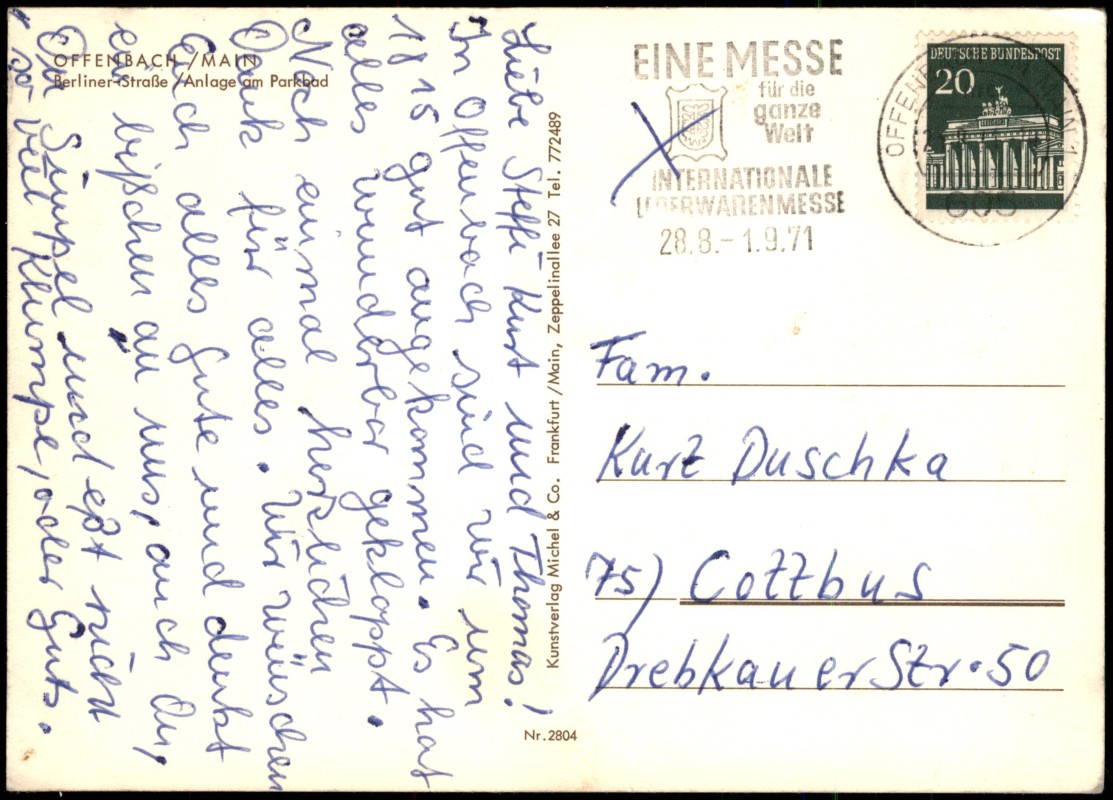 OFFENBACH/MAIN
Berliner-Straße / Anlage am Parkbad
Liebe Steffi Kurt und Thomas!
In Offenbach sind wir um
18 15 gut angekommen. Es hat
alles wunderbar geklappt.
Noch einmal herzlichen
Dank für alles. Wir wünschen
Euch alles gute und denkt
ein bißchen an uns, auch Du,
Du Simpel und eßt nicht
so viel Klümpe, oder Guts.
Kunstverlag Michel & Co. Frankfurt/Main, Zeppelinallee 27 Tel. 772489
Nr. 2804
EINE MESSE
für die
ganze
Welt
INTERNATIONALE
LEDERWARENMESSE
28.8.–1.9.71
DEUTSCHE BUNDESPOST
20
605
Fam.
Kurt Duschka
75) Cottbus
Drebkauer Str. 50